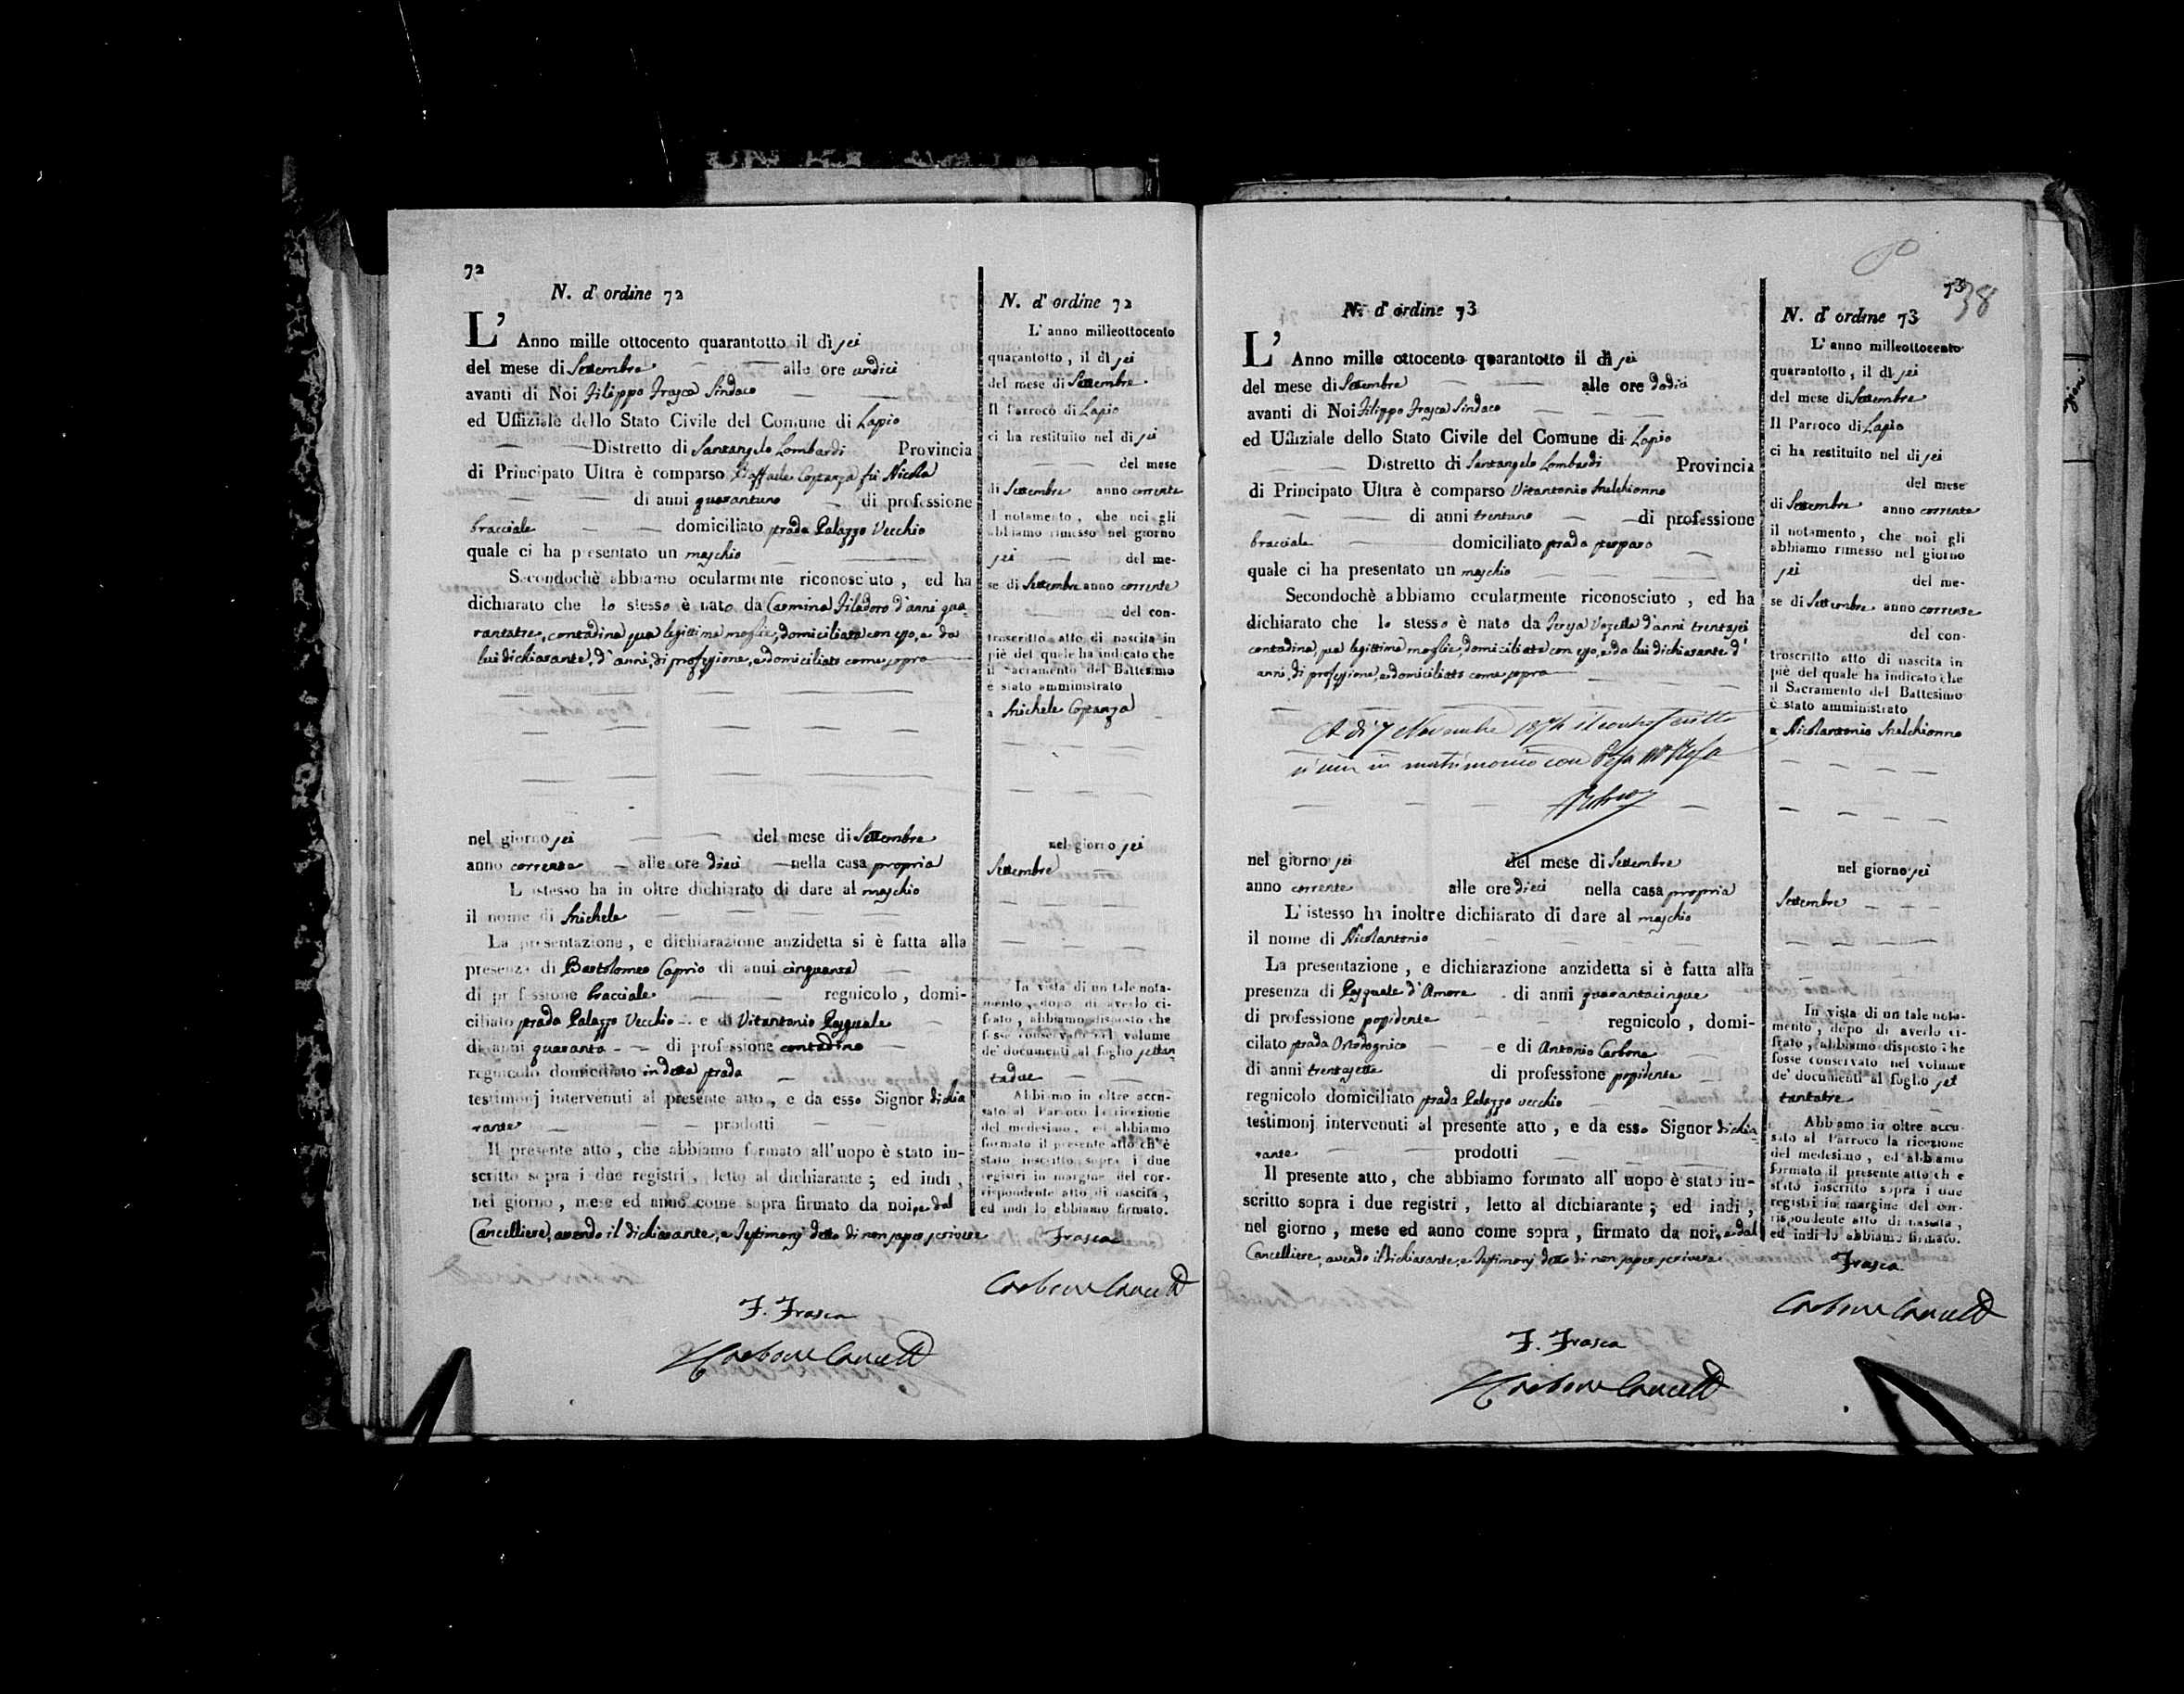 72
N. d'ordine 72
L'Anno mille ottocento quarantotto il dì sei
del mese di Settembre alle ore undici
avanti di Noi Filippo Frasca Sindaco
ed Uffiziale dello Stato Civile del Comune di Lapio
Distretto di Santangelo Lombardi Provincia
di Principato Ultra è comparso Raffaele Costanza fu Nicola
di anni quarantuno di professione
bracciale domiciliato strada Palazzo Vecchio
quale ci ha presentato un maschio
Secondochè abbiamo ocularmente riconosciuto, ed ha
dichiarato che lo stesso è nato da Carmina Filadoro d'anni qua-
rantatre, contadina sua legittima moglie, domiciliata con esso, e da
lui dichiarante, d'anni, di professione, e domiciliato come sopra
nel giorno sei del mese di Settembre
anno corrente alle ore dieci nella casa propria
L'istesso ha in oltre dichiarato di dare al maschio
il nome di Michele
La presentazione, e dichiarazione anzidetta si è fatta alla
presenza di Bartolomeo Caprio di anni cinquanta
di professione bracciale regnicolo, domi-
ciliato strada Palazzo Vecchio e di Vitantonio Pasquale
di anni quaranta di professione contadino
regnicolo domiciliato in detta strada
testimonj intervenuti al presente atto, e da esso Signor dichia
rante prodotti
Il presente atto, che abbiamo formato all'uopo è stato in-
scritto sopra i due registri, letto al dichiarante; ed indi,
nel giorno, mese ed anno come sopra firmato da noi, e dal
Cancelliere, avendo il dichiarante, e Testimonj detto di non saper scrivere
F. Frasca
Carbone Cancell
N. d'ordine 72
L'anno milleottocento
quarantotto, il dì sei
del mese di Settembre
Il Parroco di Lapio
ci ha restituito nel dì sei
del mese
di Settembre anno corrente
il notamento, che noi gli
abbiamo rimesso nel giorno
sei del me-
se di Settembre anno corrente
del con-
troscritto atto di nascita in
piè del quale ha indicato che
il Sacramento del Battesimo
è stato amministrato
a Michele Costanza
nel giorno sei
Settembre
In vista di un tale nota-
mento, dopo di averlo ci-
frato, abbiamo disposto che
fosse conservato nel volume
de' documenti al foglio settan
tadue
Abbiamo in oltre accu-
sato al Parroco la ricezione
del medesimo, ed abbiamo
formato il presente atto ch'è
stato inscritto sopra i due
registri in margine del cor-
rispondente atto di nascita,
ed indi lo abbiamo firmato.
Frasca
Carbone Cancell
73
38
N. d'ordine 73
L'Anno mille ottocento quarantotto il dì sei
del mese di Settembre alle ore dodici
avanti di Noi Filippo Frasca Sindaco
ed Uffiziale dello Stato Civile del Comune di Lapio
Distretto di Santangelo Lombardi Provincia
di Principato Ultra è comparso Vitantonio Melchionno
di anni trentuno di professione
bracciale domiciliato strada
quale ci ha presentato un maschio
Secondochè abbiamo ocularmente riconosciuto, ed ha
dichiarato che lo stesso è nato da Teresa d'anni trentasei
contadina, sua legittima moglie, domiciliata con esso, e da lui dichiarante d'
anni, di professione, e domiciliato come sopra
A dì 7 Novembre 1874 il controscritto
si unì in matrimonio con Rosa
nel giorno sei del mese di Settembre
anno corrente alle ore dieci nella casa propria
L'istesso ha inoltre dichiarato di dare al maschio
il nome di Nicolantonio
La presentazione, e dichiarazione anzidetta si è fatta alla
presenza di Pasquale d'Amore di anni quarantacinque
di professione possidente regnicolo, domi-
cilato strada Ortodognico e di Antonio Carbone
di anni trentasette di professione possidente
regnicolo domiciliato strada Palazzo vecchio
testimonj intervenuti al presente atto, e da esso Signor dichia
rante prodotti
Il presente atto, che abbiamo formato all'uopo è stato in-
scritto sopra i due registri, letto al dichiarante; ed indi,
nel giorno, mese ed anno come sopra, firmato da noi, e dal
Cancelliere, avendo il dichiarante, e Testimonj detto di non saper scrivere
F. Frasca
Carbone Cancell
N. d'ordine 73
L'anno milleottocento
quarantotto, il dì sei
del mese di Settembre
Il Parroco di Lapio
ci ha restituito nel dì sei
del mese
di Settembre anno corrente
il notamento, che noi gli
abbiamo rimesso nel giorno
sei del me-
se di Settembre anno corrente
del con-
troscritto atto di nascita in
piè del quale ha indicato che
il Sacramento del Battesimo
è stato amministrato
a Nicolantonio Melchionno
nel giorno sei
Settembre
In vista di un tale nota-
mento, dopo di averlo ci-
frato, abbiamo disposto che
fosse conservato nel volume
de' documenti al foglio set
tantatre
Abbiamo in oltre accu-
sato al Parroco la ricezione
del medesimo, ed abbiamo
formato il presente atto ch'e
stato inscritto sopra i due
registri in margine del cor-
rispondente atto di nascita,
ed indi lo abbiamo firmato.
Frasca
Carbone Cancell